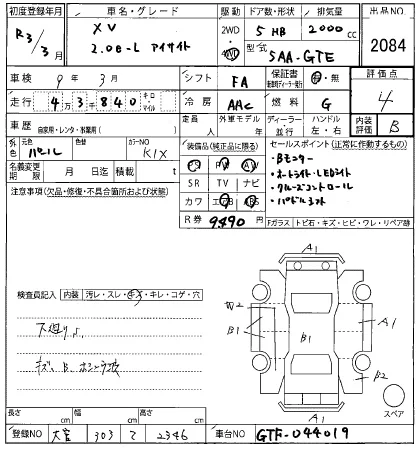 初度登録年月 車名・グレード 駆動 ドア数・形状 排気量 出品NO
R3/3月 XV 2WD 5 HB 2000 cc 2084
2.0e-L アイサイト 4WD 型式 5AA-GTE
車検 9年 3月 シフト FA 保証書 有・無 評価点
走行 4万3千840 キロ・マイル 冷房 AAC 燃料 G 4
車歴 自家用・レンタ・事業用( ) 定員 人 外車モデル 年 ディーラー・並行 ハンドル 左・右 内装評価 B
外色 元色 パール 色替 カラーNO K1X 装備品(純正品に限る) セールスポイント(正常に作動するもの)
名義変更期限 月 日迄 積載 t PS PW AW ・Bモニター
注意事項(欠品・修復・不具合箇所および状態) SR TV ナビ ・オートライト・LEDライト
カワ エアB ABS ・クルーズコントロール
・パドルシフト
R券 9490 Fガラス トビ石・キズ・ヒビ・ワレ・リペア跡
A1
検査員記入 内装 汚レ・スレ・キズ・キレ・コゲ・穴
W2
B1 B1 A1
キズ、B、
B2
A1
スペア
長さ cm 幅 cm 高さ cm
登録NO 303 て 2346 車台NO GTE-044019